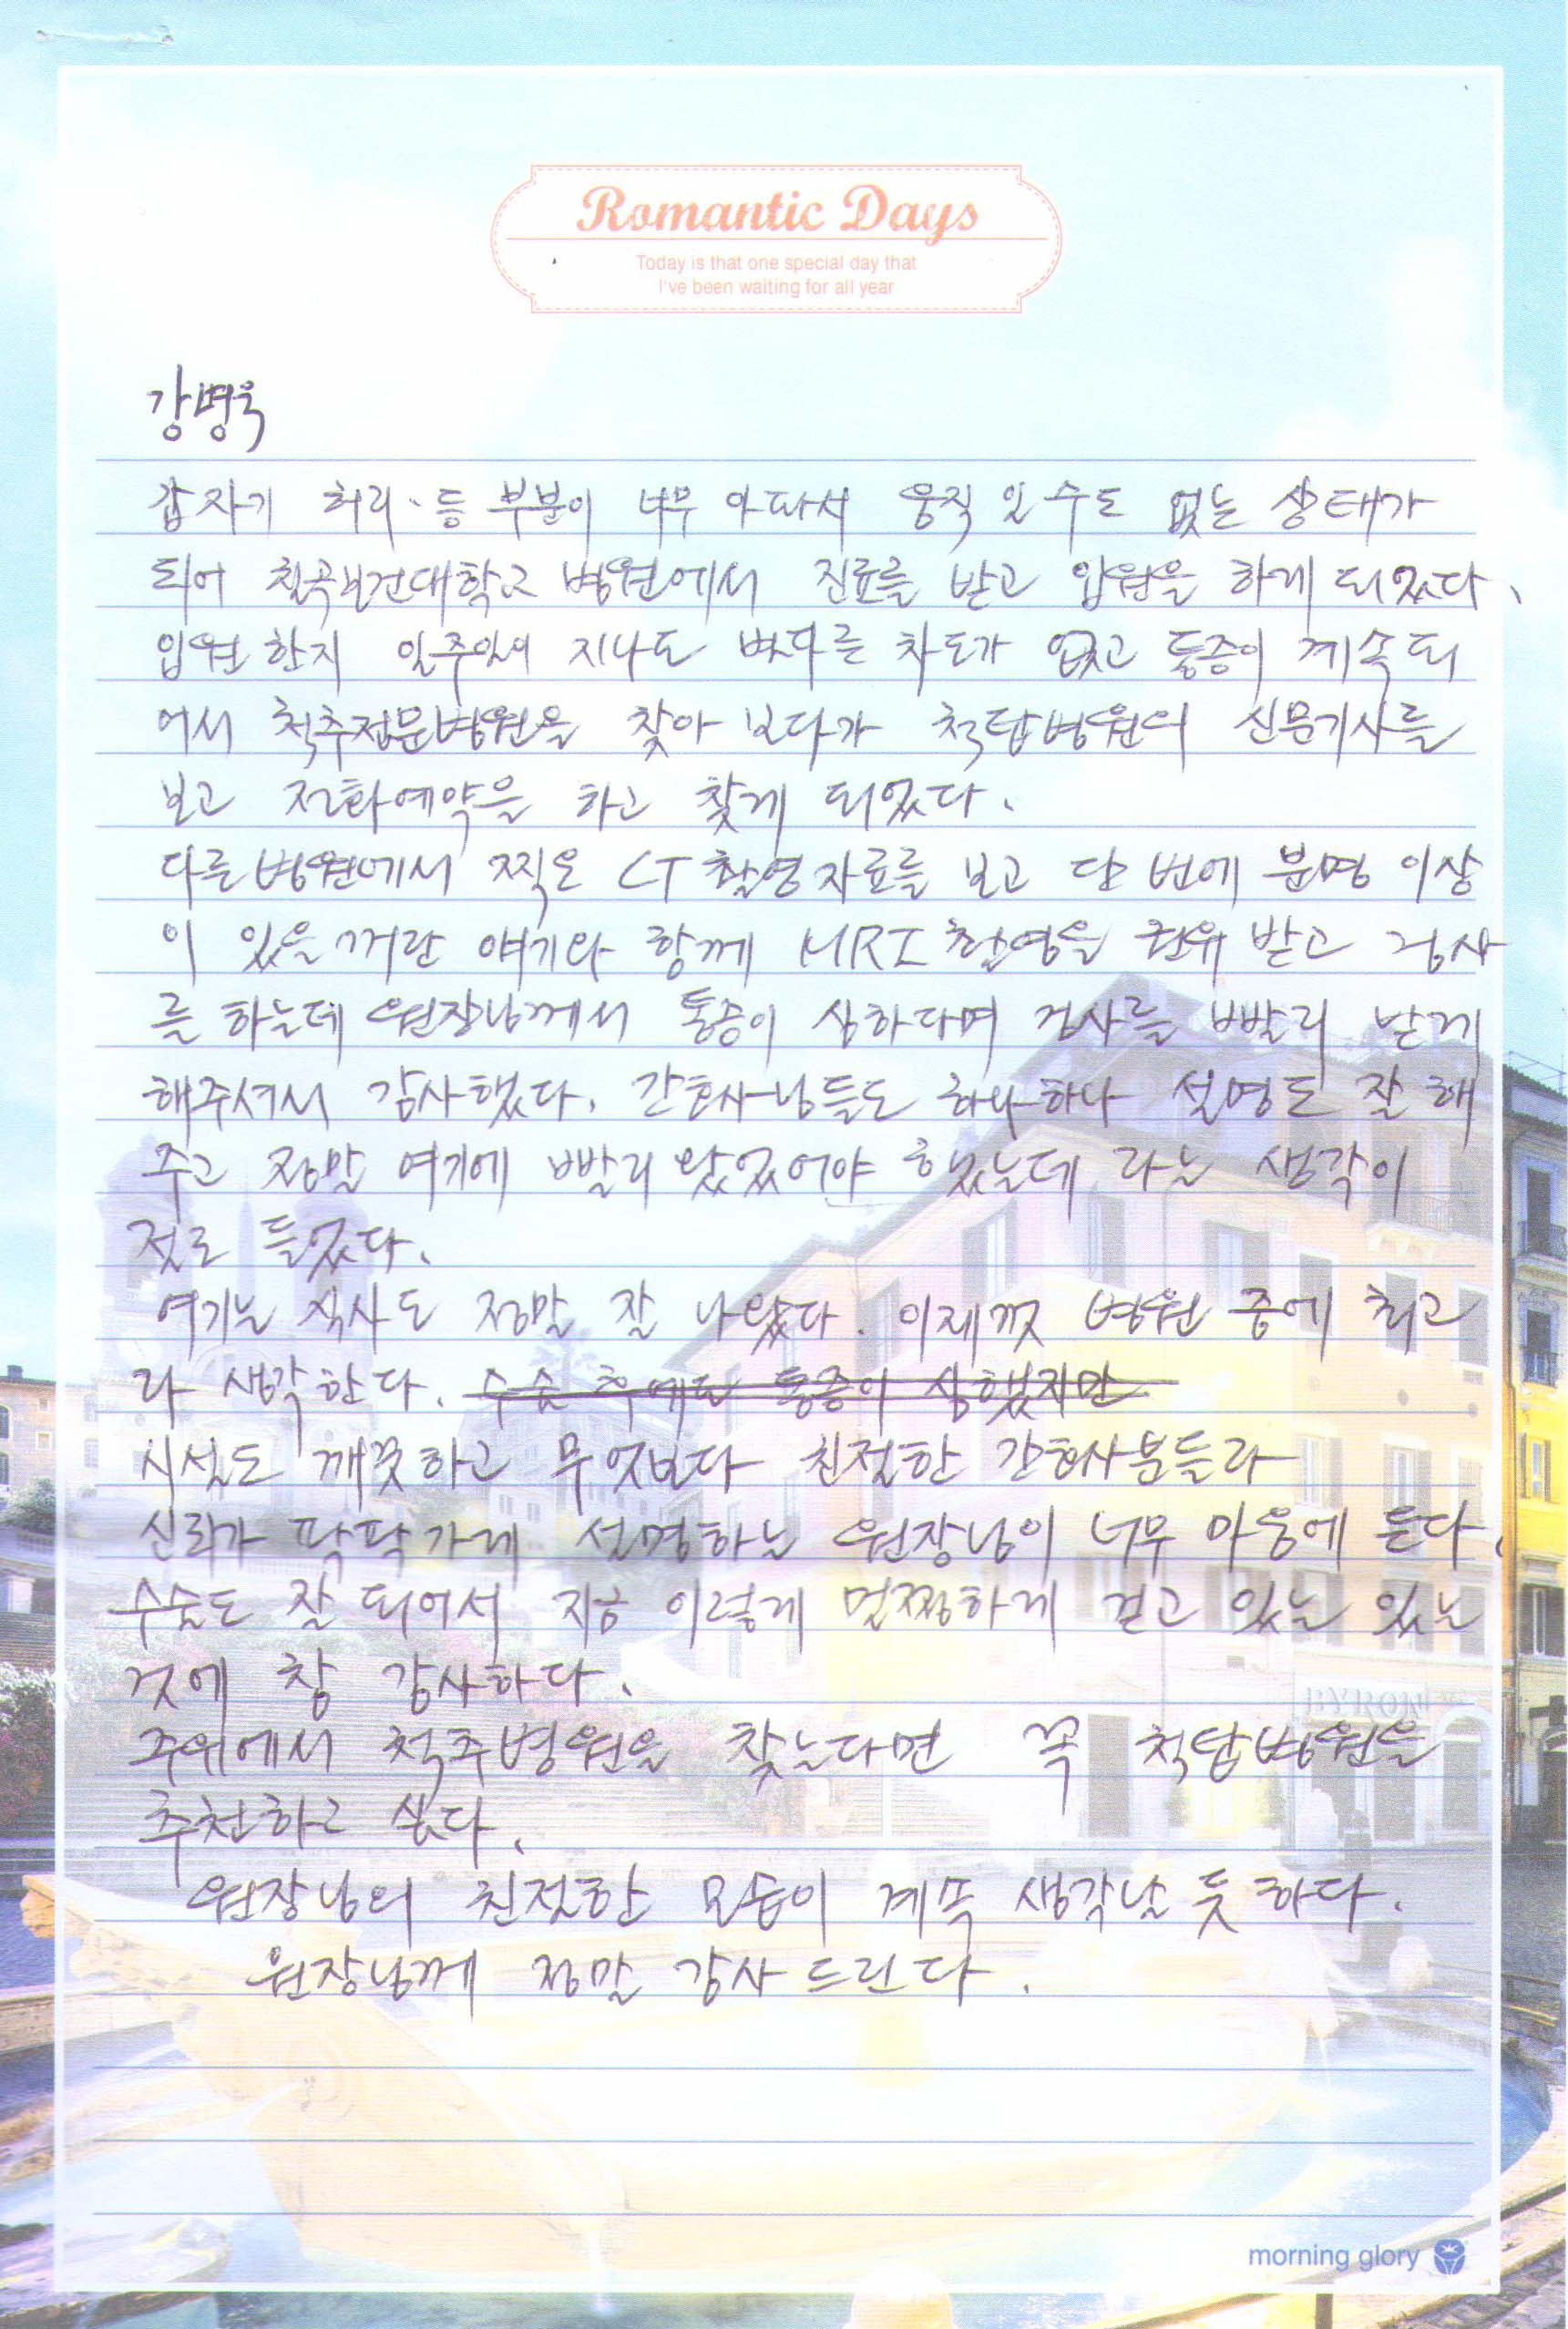 Romantic Days
Today is that one special day that
I've been waiting for all year
강병욱
갑자기 허리·등 부분이 너무 아파서 움직 일 수도 없는 상태가
되어 칠곡보건대학교 병원에서 진료를 받고 입원을 하게 되었다.
입원 한지 일주일이 지나도 별다른 차도가 없고 통증이 계속되
어서 척추전문병원을 찾아 보다가 척탑병원의 신문기사를
보고 전화예약을 하고 찾게 되었다.
다른병원에서 찍은 CT촬영자료를 보고 단 번에 분명 이상
이 있을꺼란 얘기와 함께 MRI 촬영을 권유 받고 검사
를 하는데 원장님께서 통증이 심하다며 검사를 빨리 받게
해주셔서 감사했다. 간호사님들도 하나하나 설명도 잘 해
주고 정말 여기에 빨리 왔었어야 했는데 라는 생각이
절로 들었다.
여기는 식사도 정말 잘 나왔다. 이제껏 병원 중에 최고
라 생각한다. 수술 후에도 통증이 심했지만
시설도 깨끗하고 무엇보다 친절한 간호사분들과
신뢰가 팍팍가게 설명하는 원장님이 너무 마음에 든다.
수술도 잘 되어서 지금 이렇게 멀쩡하게 걷고 있는 있는
것에 참 감사하다.
주위에서 척추병원을 찾는다면 꼭 척탑병원을
추천하고 싶다.
원장님의 친절한 모습이 계속 생각날 듯 하다.
원장님께 정말 감사 드린다.
morning glory